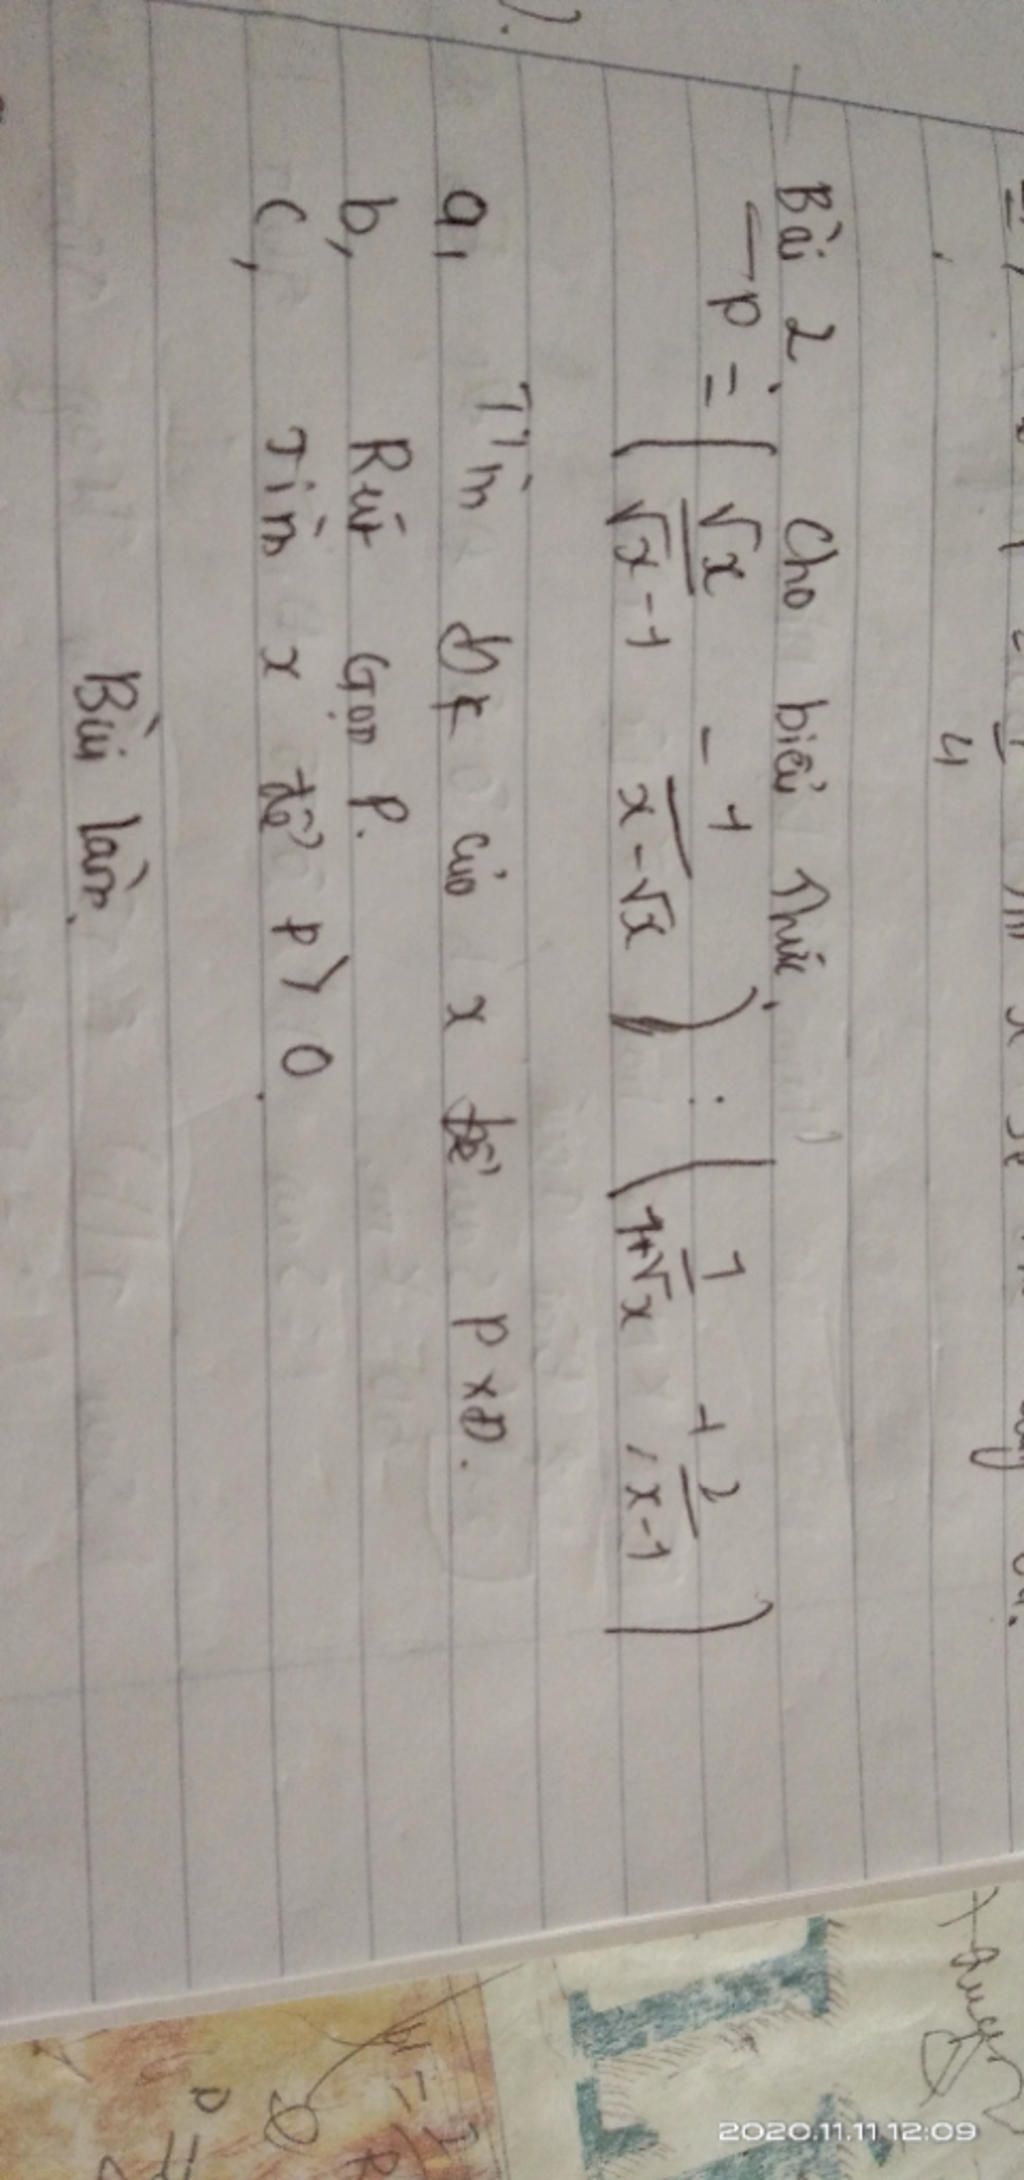 4
Bài 2. Cho biểu thức.
P = ( √x/√x-1 - 1/x-√x ) : ( 1/1+√x + 2/x-1 )
a, Tìm đk của x để P xĐ.
b, Rút Gọn P.
c, Tìm x để P > 0.
Bài làm.
2020.11.11 12:09